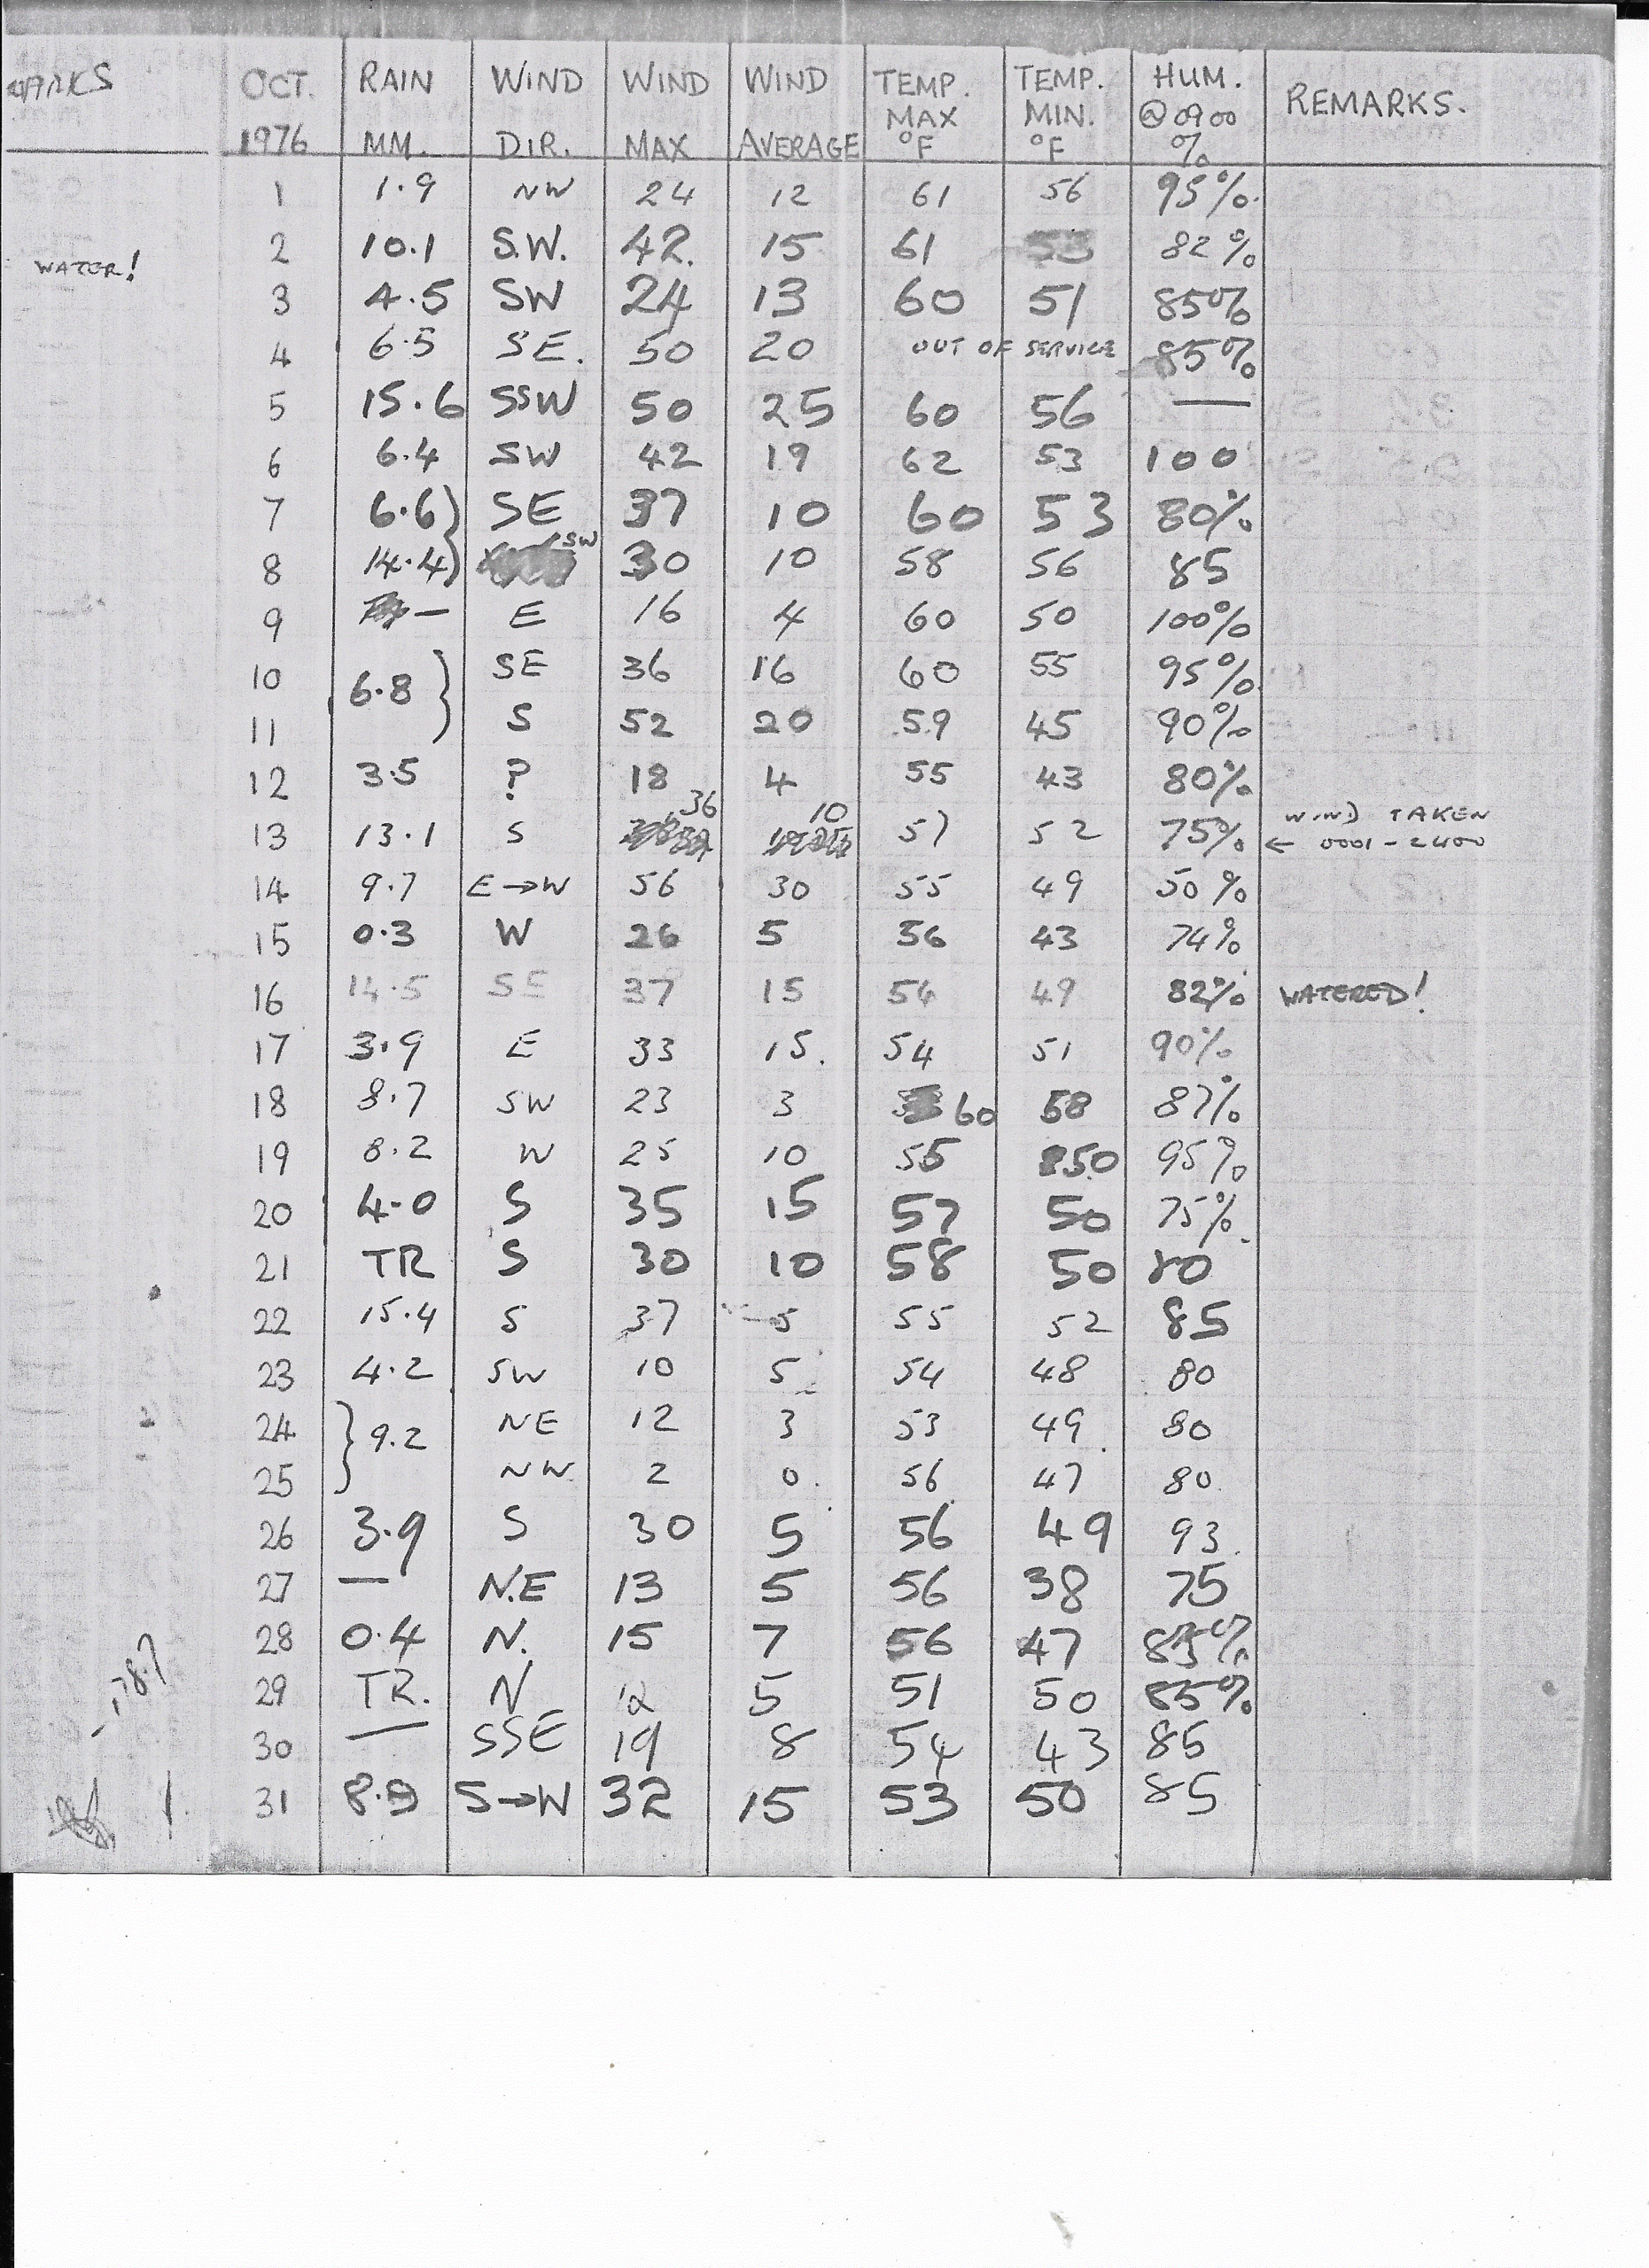 OCT. RAIN WIND WIND WIND TEMP. TEMP. HUM. REMARKS.
MAX MIN. @ 0900
1976 MM. DIR. MAX AVERAGE °F °F %
1 1.9 NW 24 12 61 56 95%
2 10.1 S.W. 42. 15 61 53 82%
WATER!
3 4.5 SW 24 13 60 51 85%
4 6.5 SE. 50 20 OUT OF SERVICE 85%
5 15.6 SSW 50 25 60 56 —
6 6.4 SW 42 19 62 53 100
7 6.6 } SE 37 10 60 53 80%
8 14.4 } SW 30 10 58 56 85
9 — E 16 4 60 50 100%
10 6.8 } SE 36 16 60 55 95%
11 S 52 20 59 45 90%
12 3.5 ? 18 4 55 43 80%
13 13.1 S 36 10 57 52 75% WIND TAKEN
← 0001 - 2400
14 9.7 E→W 56 30 55 49 50%
15 0.3 W 26 5 56 43 74%
16 14.5 SE 37 15 54 49 82% WATERED!
17 3.9 E 33 15. 54 51 90%
18 8.7 SW 23 3 60 58 87%
19 8.2 W 25 10 55 50 95%
20 4.0 S 35 15 57 50 75%
21 TR S 30 10 58 50 80
22 15.4 S 37 5 55 52 85
23 4.2 SW 10 5 54 48 80
24 } 9.2 NE 12 3 53 49 80
25 NW 2 0. 56 47 80
26 3.9 S 30 5 56 49 93
27 — N.E 13 5 56 38 75
28 0.4 N. 15 7 56 47 %
29 TR. N 12 5 51 50 85%
30 — SSE 19 8 54 43 85
31 S→W 32 15 53 50 85